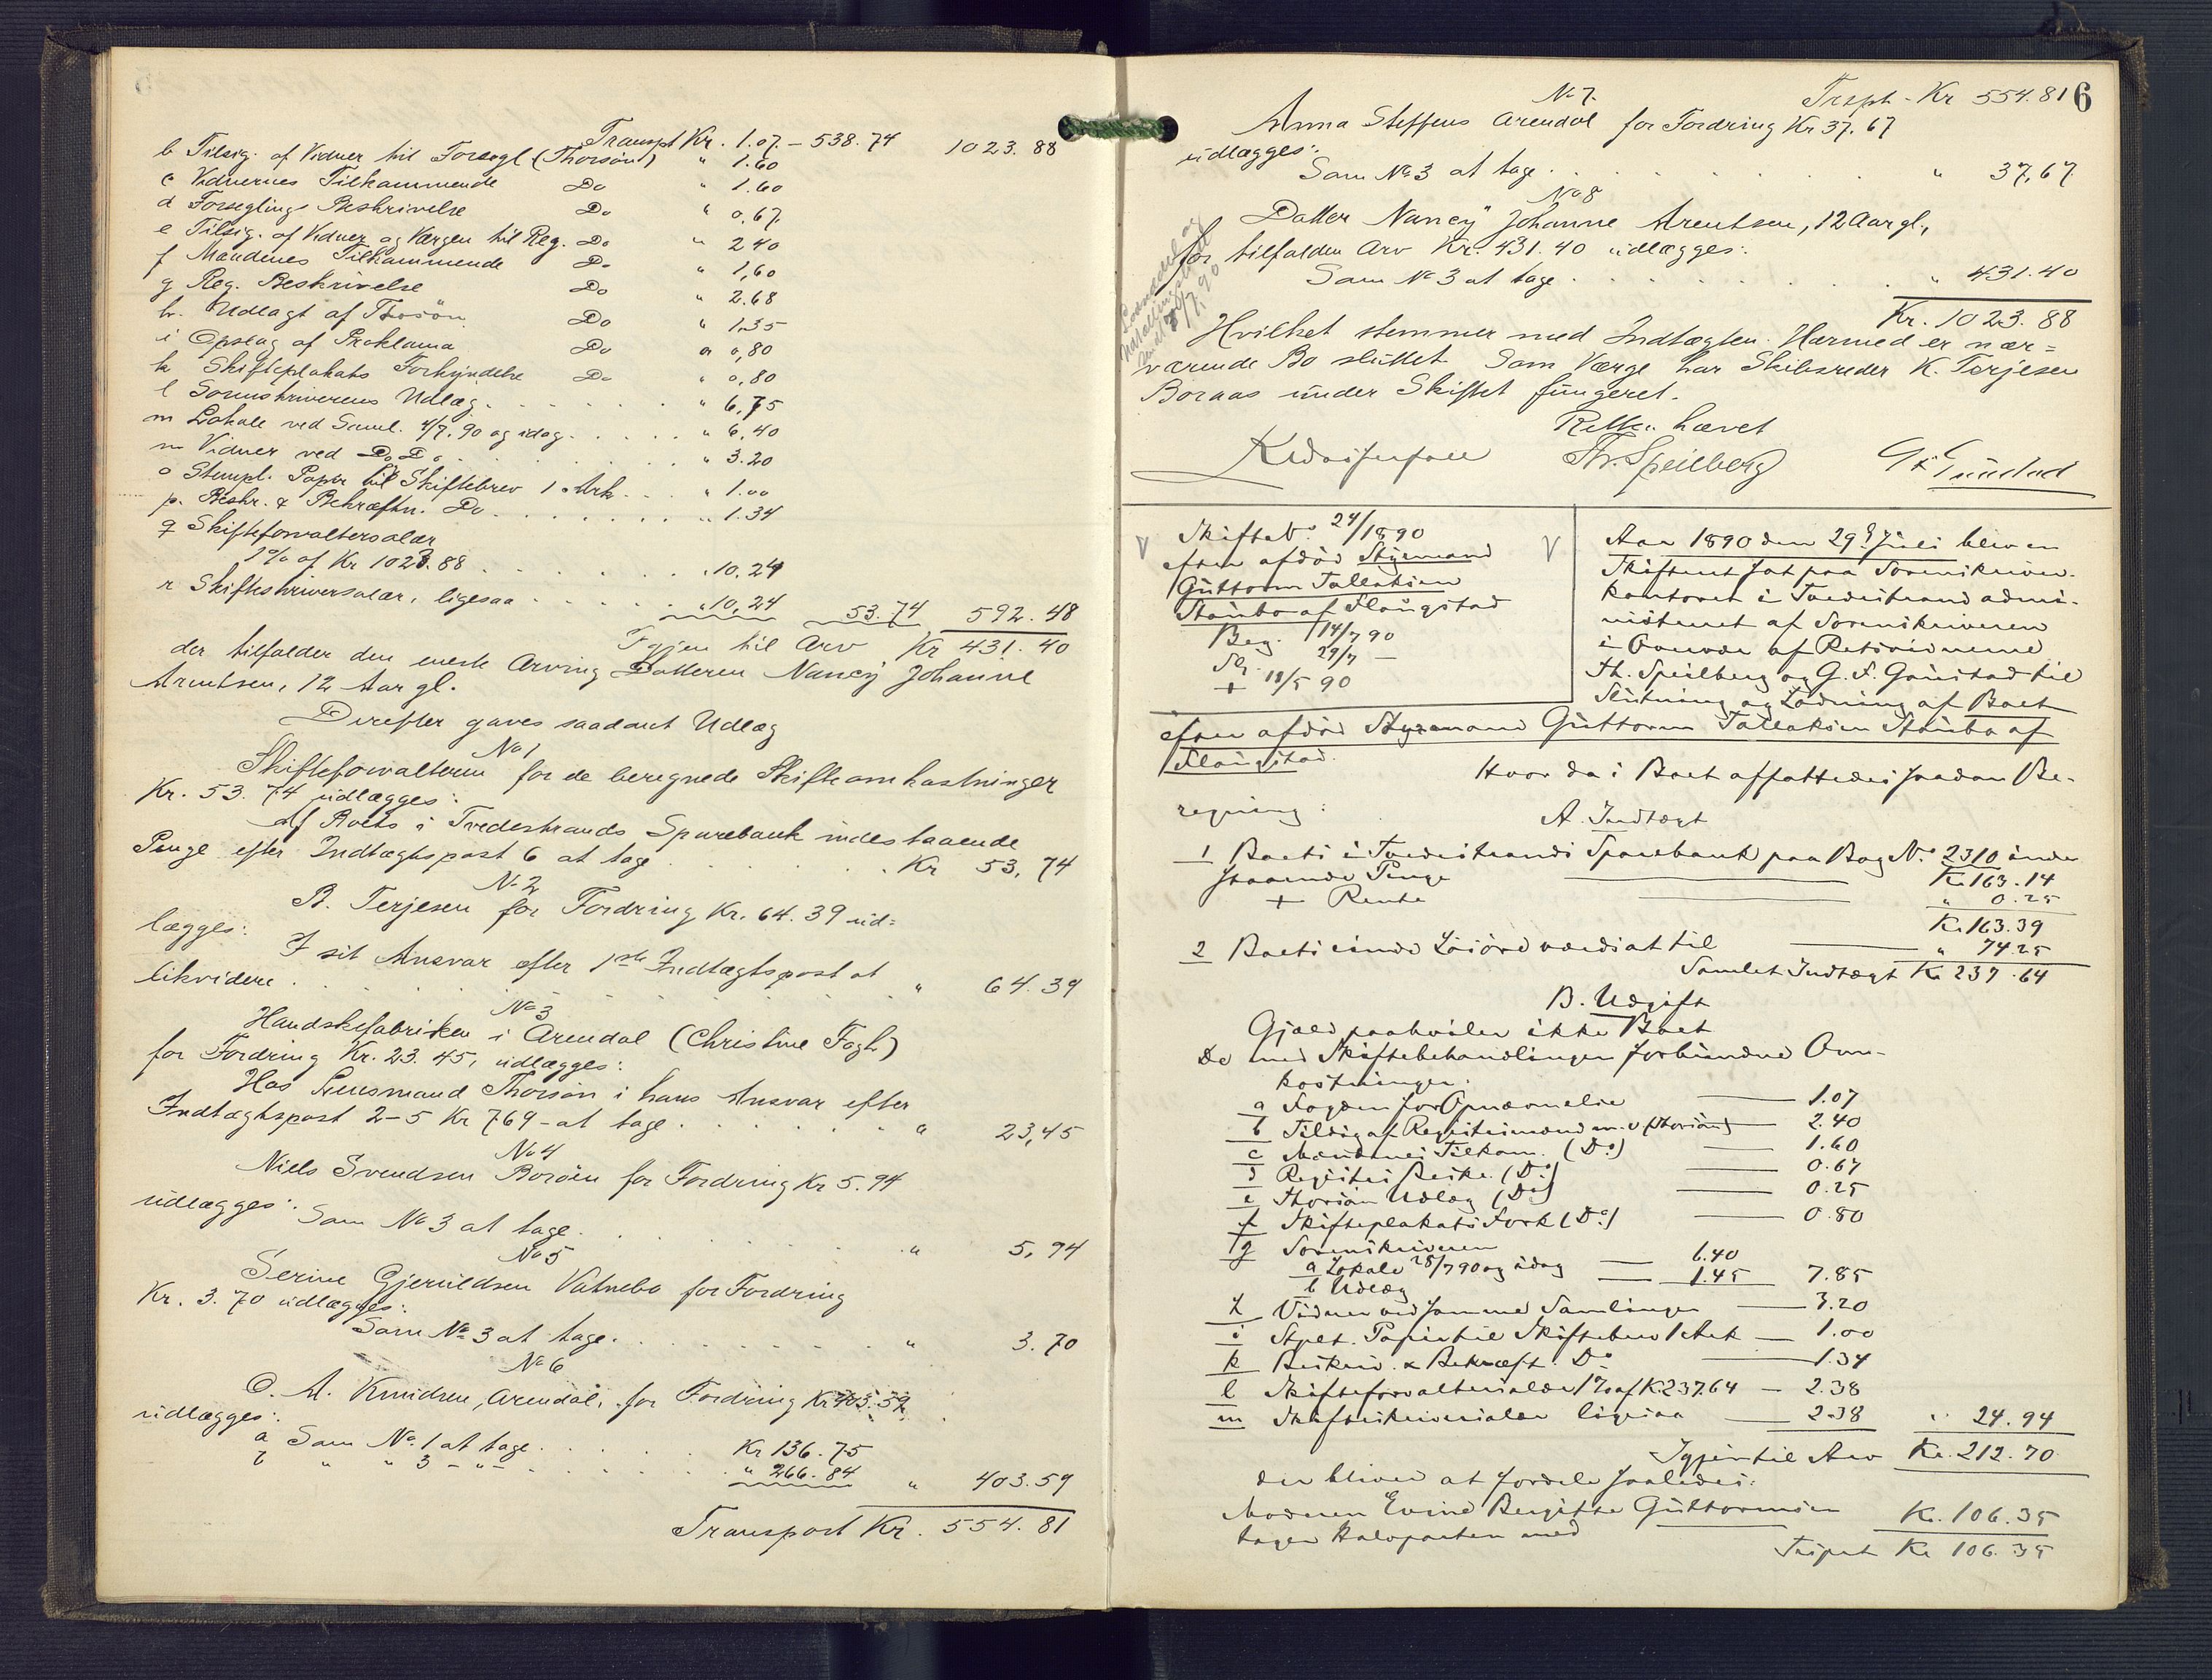 Transpt Kr. 1.07 – 538.74 1023.88
b Tilsig. af Vidner til Forsegl (Thorsøn) " 1.60
c Vidnernes Tilkommende Do " 1.60
d Forseglings Beskrivelse Do " 0,67
e Tilsig. af Vidner og Værgen til Reg. Do " 2 40
f Mændenes Tilkommende Do " 1,60
g Reg. Beskrivelse Do " 2.68
h. Udlagt af Thorsøn Do " 1.35
i Opslag af Proklama Do " 0,80
k Skifteplakats Forkyndelse Do " 0,80
l Sorenskriverens Udlæg. " 6,75
m Lokale ved Saml. 4/7.90 og idag. " 6,40
n Vidner ved Do Do. " 3.20
o Stempl. Papir til Skiftebrev 1 Ark. " 1.00
p. Beskr. & Bekræftn. Do " 1.34
q Skifteforvaltersalær
1% af Kr 1023.88 " 10,24
r Skifteskriversalær, ligesaa " 10,24 53.74 592.48
Igjen til Arv Kr 431.40
der tilfalder den eneste Arving Datteren Nancy Johanne
Arentsen, 12 Aar gl.
Derefter gaves saadant Udlæg
No 1
Skifteforvalteren for de beregnede Skifteomkostninger
Kr. 53.74 udlægges:
Af Boets i Tvedestrands Sparebank indestaaende
Penge efter Indtægtspost 6 at tage Kr 53,74
No 2
B. Terjesen for Fordring Kr. 64.39 ud=
lægges:
I sit Ansvar efter 1ste Indtægtspost at
likvidere " 64.39
No 3
Handskefabriken i Arendal (Christine Fogh)
for Fordring Kr. 23.45, udlægges:
Hos Lensmand Thorsøn i hans Ansvar efter
Indtægtspost 2–5 Kr 769 – at tage " 23,45
No 4
Niels Svendsen Borøen for Fordring Kr 5.94
udlægges:
Som No 3 at tage. " 5,94
No 5
Serine Gjeruldsen Vatnebo for Fordring
Kr. 3.70 udlægges:
Som No 3 at tage. " 3.70
No 6
O. A. Knudsen, Arendal, for Fordring Kr 403.59
udlægges:
a Som No. 1 at tage. Kr 136.75
b " " 3 – " – " 266.84 " 403.59
Transport Kr. 554.81
6
Trspt – Kr 554.81
No 7.
Anna Steffens Arendal for Fordring Kr 37.67
udlægges:
Som No 3 at tage. " 37,67
No 8
Datter Nancy Johanne Arentsen, 12 Aar gl.,
for tilfalden Arv Kr. 431.40 udlægges:
Som No 3 at tage " 431.40
Kr. 1023.88
Hvilket stemmer med Indtægten. Hermed er nær=
værende Bo sluttet. Som Værge har Skibsreder K. Terjesen
Boraas under Skiftet fungeret.
Retten hævet
Th. Speilberg G F Gunstad
Skifte No. 24/1890
efter afdød Styrmand
Guttorm Tallaksen
Stanbo af Flaugstad
Beg. 14/7 90
Sl. 29/7 –
+ 18/5 90
Aar 1890 den 29de Juli blev en
Skifteret sat paa Sorenskriver-
kontoret i Tvedestrand admi-
nistreret af Sorenskriveren
i Overvær af Retsvidnerne
Th. Speilberg og G. F. Gunstad til
Slutning og Lodning af Boet
efter afdød Styrmand Guttorm Tallaksen Stanbo af
Flaugstad.
Hvor da i Boet affattedes saadan Be-
regning:
A. Indtægt
1 Boets i Tvedestrands Sparebank paa Bog No. 2310 inde
staaende Penge Kr 163.14
+ Rente " 0.25
Kr. 163.39
2 Boets einde Løsøre værdiat til " 74.25
Samlet Indtægt Kr 237.64
B. Udgift
Gjæld paahviler ikke Boet
De med Skiftebehandlingen forbundne Om-
kostninger:
a Fogden for Opnævnelse 1.07
b Tilsig af Registermænd m. v (Thorsøn) 2.40
c Mændenes Tilkom. (Do.) 1.60
d Registers Beskr. (Do.) 0.67
e Thorsøns Udlæg (Do) 0.25
f Skifteplakats Fork (Do.) 0.80
g Sorenskriveren
a Lokale 28/7 90 og idag 6.40
b Udlæg 1.45 7.85
h Vidner ved samme Samlinger 3.20
i Stplt. Papir til Skiftebrev 1 Ark 1.00
k Beskriv. & Bekræft. Do. 1.34
l Skifteforvaltersalær 1% af K 237.64 2.38
m Skifteskriversalær ligesaa 2.38 " 24.94
Igjen til Arv Kr. 212.70
der bliver at fordele saaledes:
Moderen Evine Bergitte Guttormsen
tager Halvparten med Kr. 106.35
Trspt Kr 106.35